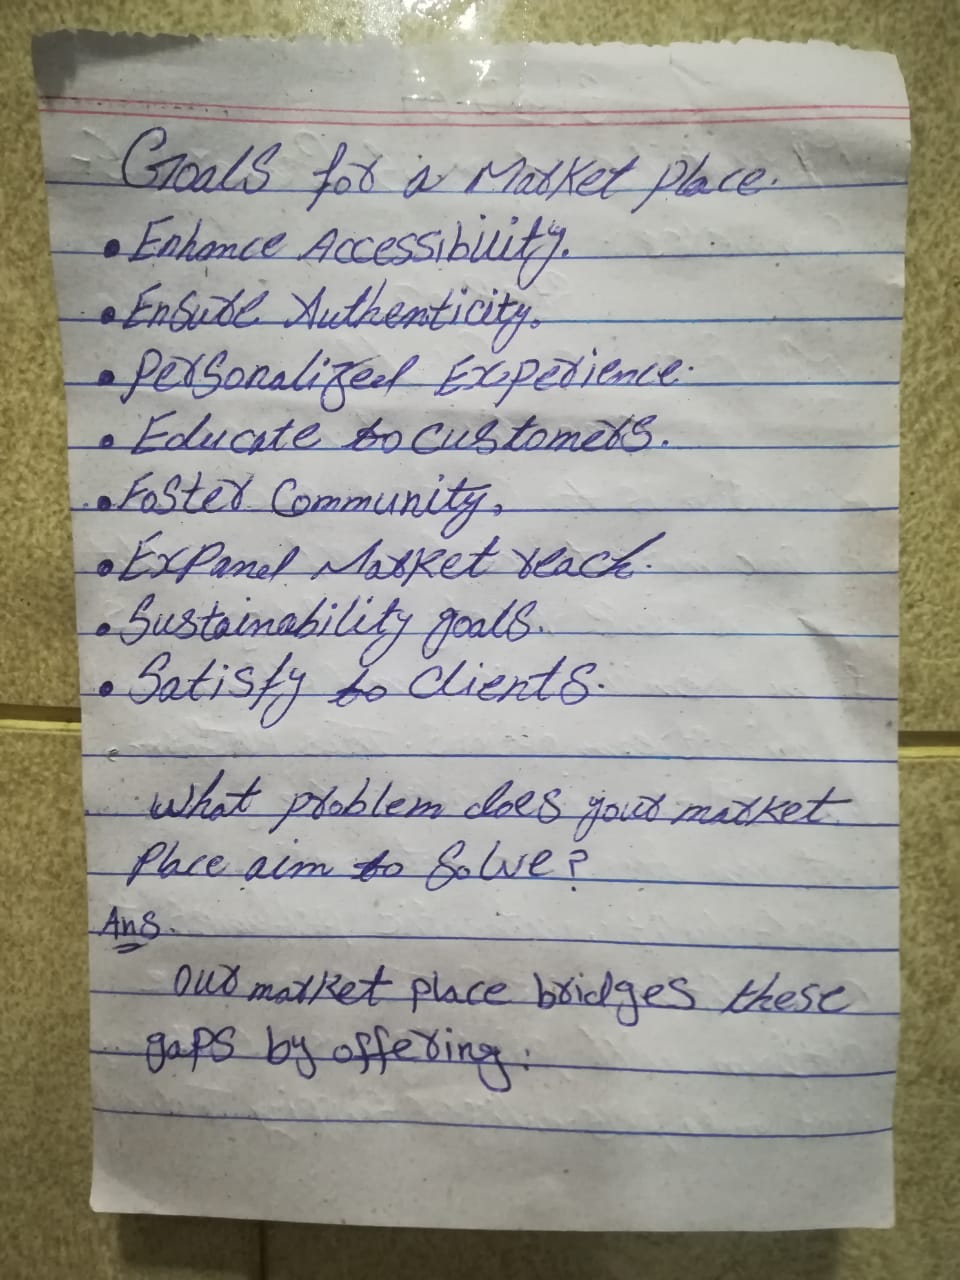 Goals for a Market Place.
• Enhance Accessibility.
• Ensure Authenticity.
• Personalized Experience.
• Educate to customers.
• Foster Community,
• Expand Market reach.
• Sustainability goals.
• Satisfy to Clients.
What problem does your market
Place aim to Solve?
Ans.
our market place bridges these
gaps by offering: